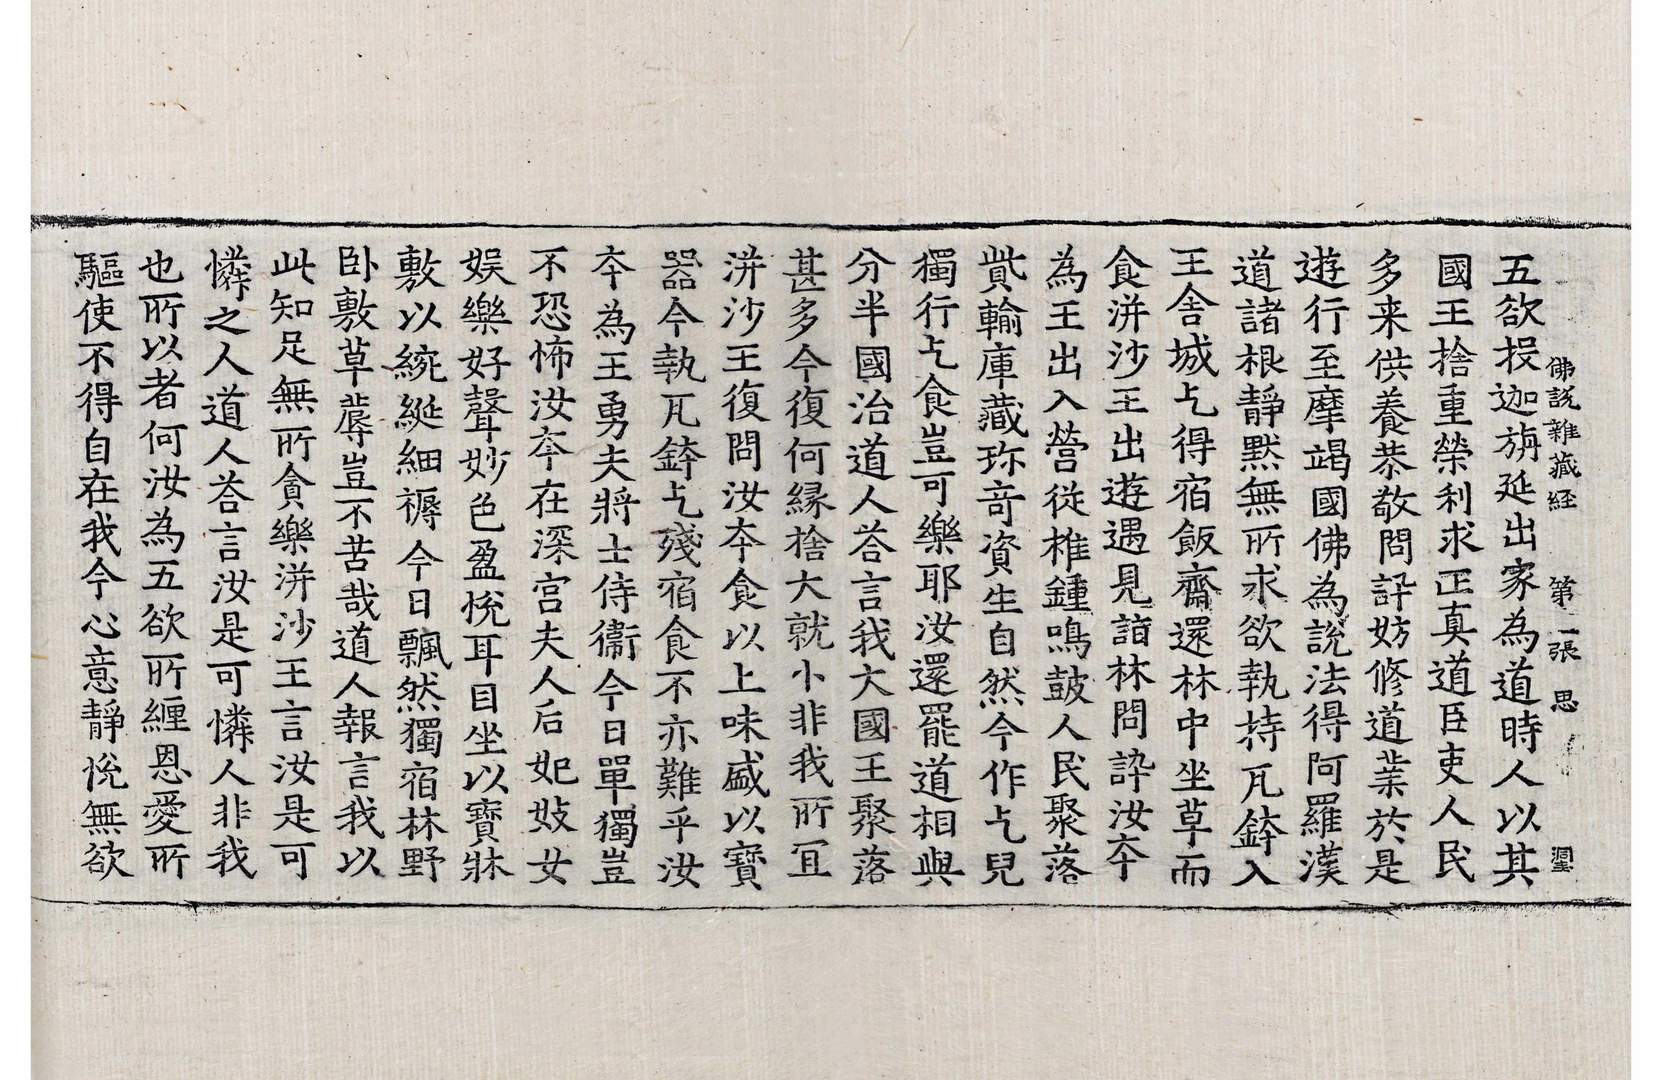 佛說雜藏經 第二張 思
五欲投迦旃延出家為道時人以其
國王捨重榮利求正真道臣吏人民
多来供養恭敬問訊妨修道業於是
遊行至摩竭國佛為說法得阿羅漢
道諸根靜默無所求欲執持瓦鉢入
王舎城乞得宿飯齋還林中坐草而
食洴沙王出遊遇見詣林問訊汝夲
為王出入營從椎鍾鳴鼓人民聚落
貲輸庫藏珎竒資生自然今作乞兒
獨行乞食豈可樂耶汝還罷道相與
分半國治道人荅言我大國王聚落
甚多今復何縁捨大就小非我所冝
洴沙王復問汝夲食以上味盛以寶
器今執瓦鉢乞殘宿食不亦難乎汝
夲為王勇夫將士侍衞今日單獨豈
不恐怖汝夲在深宫夫人后妃妓女
娱樂好聲妙色盈恱耳目坐以寶牀
敷以綩綖細褥今日飄然獨宿林野
卧敷草蓐豈不苦哉道人報言我以
此知足無所貪樂洴沙王言汝是可
憐之人道人荅言汝是可憐人非我
也所以者何汝為五欲所纒恩愛所
驅使不得自在我今心意靜恱無欲